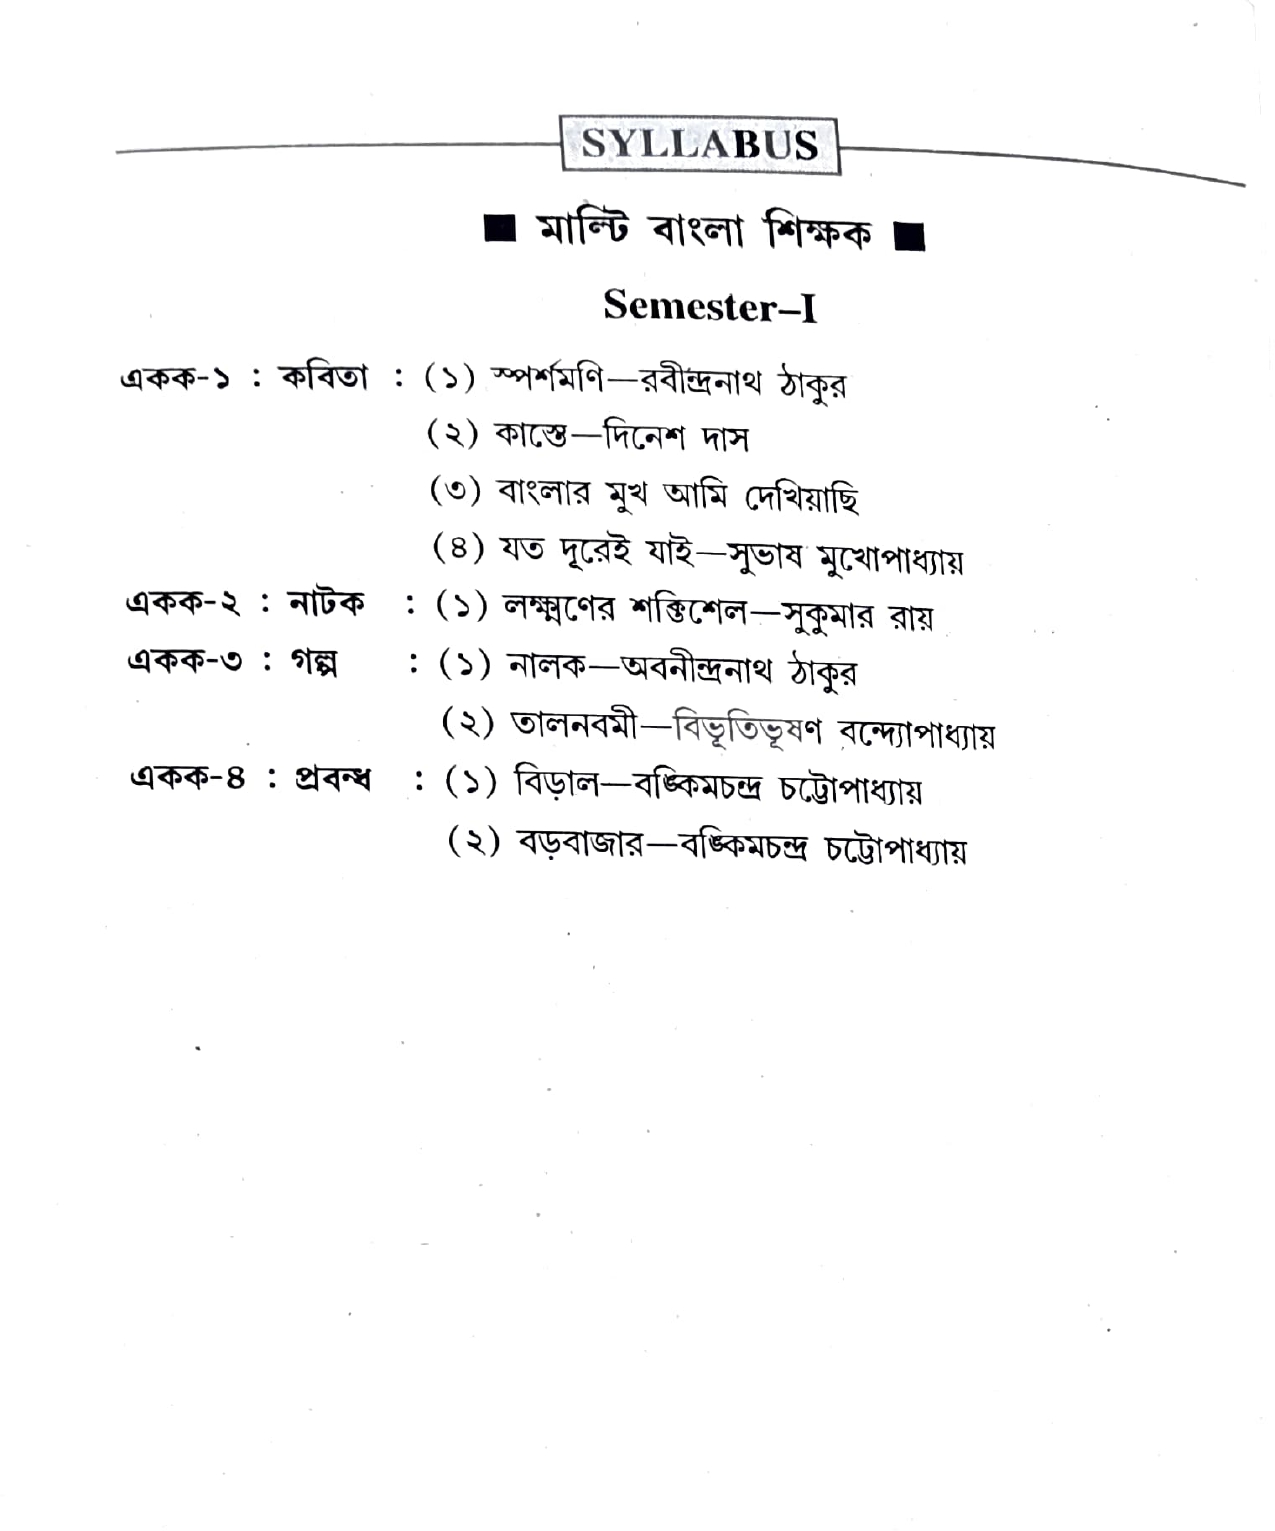 SYLLABUS
■ মাল্টি বাংলা শিক্ষক ■
Semester–I
একক-১ : কবিতা : (১) স্পর্শমণি—রবীন্দ্রনাথ ঠাকুর
(২) কাস্তে—দিনেশ দাস
(৩) বাংলার মুখ আমি দেখিয়াছি
(৪) যত দূরেই যাই—সুভাষ মুখোপাধ্যায়
একক-২ : নাটক : (১) লক্ষ্মণের শক্তিশেল—সুকুমার রায়
একক-৩ : গল্প : (১) নালক—অবনীন্দ্রনাথ ঠাকুর
(২) তালনবমী—বিভূতিভূষণ বন্দ্যোপাধ্যায়
একক-৪ : প্রবন্ধ : (১) বিড়াল—বঙ্কিমচন্দ্র চট্টোপাধ্যায়
(২) বড়বাজার—বঙ্কিমচন্দ্র চট্টোপাধ্যায়